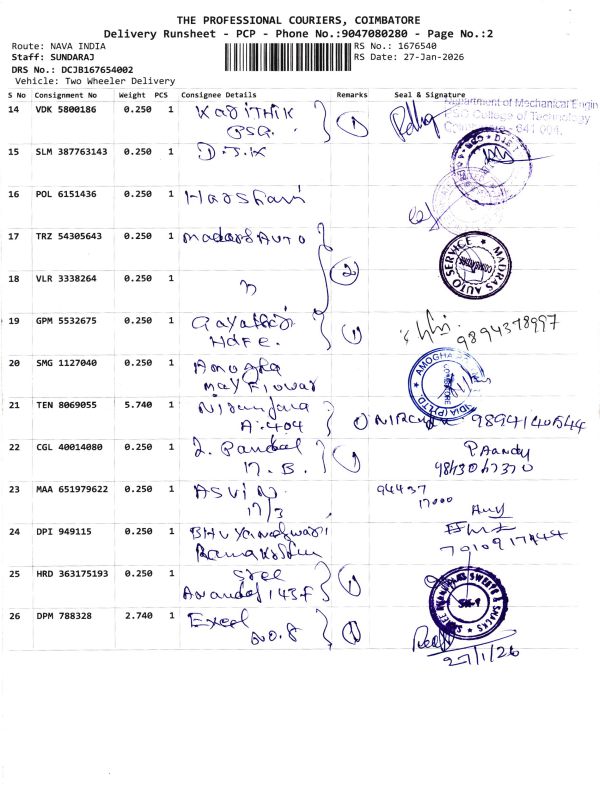 THE PROFESSIONAL COURIERS, COIMBATORE
Delivery Runsheet - PCP - Phone No.:9047080280 - Page No.:2
Route: NAVA INDIA
Staff: SUNDARAJ
DRS No.: DCJB167654002
Vehicle: Two Wheeler Delivery
RS No.: 1676540
RS Date: 27-Jan-2026
S No Consignment No Weight PCS Consignee Details Remarks Seal & Signature
14 VDK 5800186 0.250 1 Kasithik 1 Department of Mechanical Engin
PSG. PSG College of Technology
641 004.
15 SLM 387763143 0.250 1 D.J.K
16 POL 6151436 0.250 1 Harshavi
17 TRZ 54305643 0.250 1 Madars AUTO 2 MADRAS AUTO SERVICE COIMBATORE
18 VLR 3338264 0.250 1
19 GPM 5532675 0.250 1 Gayathri 1 9894378997
HDFC.
20 SMG 1127040 0.250 1 Amogha AMOGHA INDIA (P) LTD.
Mayflower
21 TEN 8069055 5.740 1 Niranjana 1
A.404
22 CGL 40014080 0.250 1 J. Pandial 1 PAandy
17.B.
23 MAA 651979622 0.250 1 ASVIN. 94437
17/3 17000
24 DPI 949115 0.250 1 Bhuvaneshwari 7910917444
25 HRD 363175193 0.250 1 Sree 1 SWEETS & SNACKS
Anandas 143F
26 DPM 788328 2.740 1 Excel 1
NO.8 27/1/26